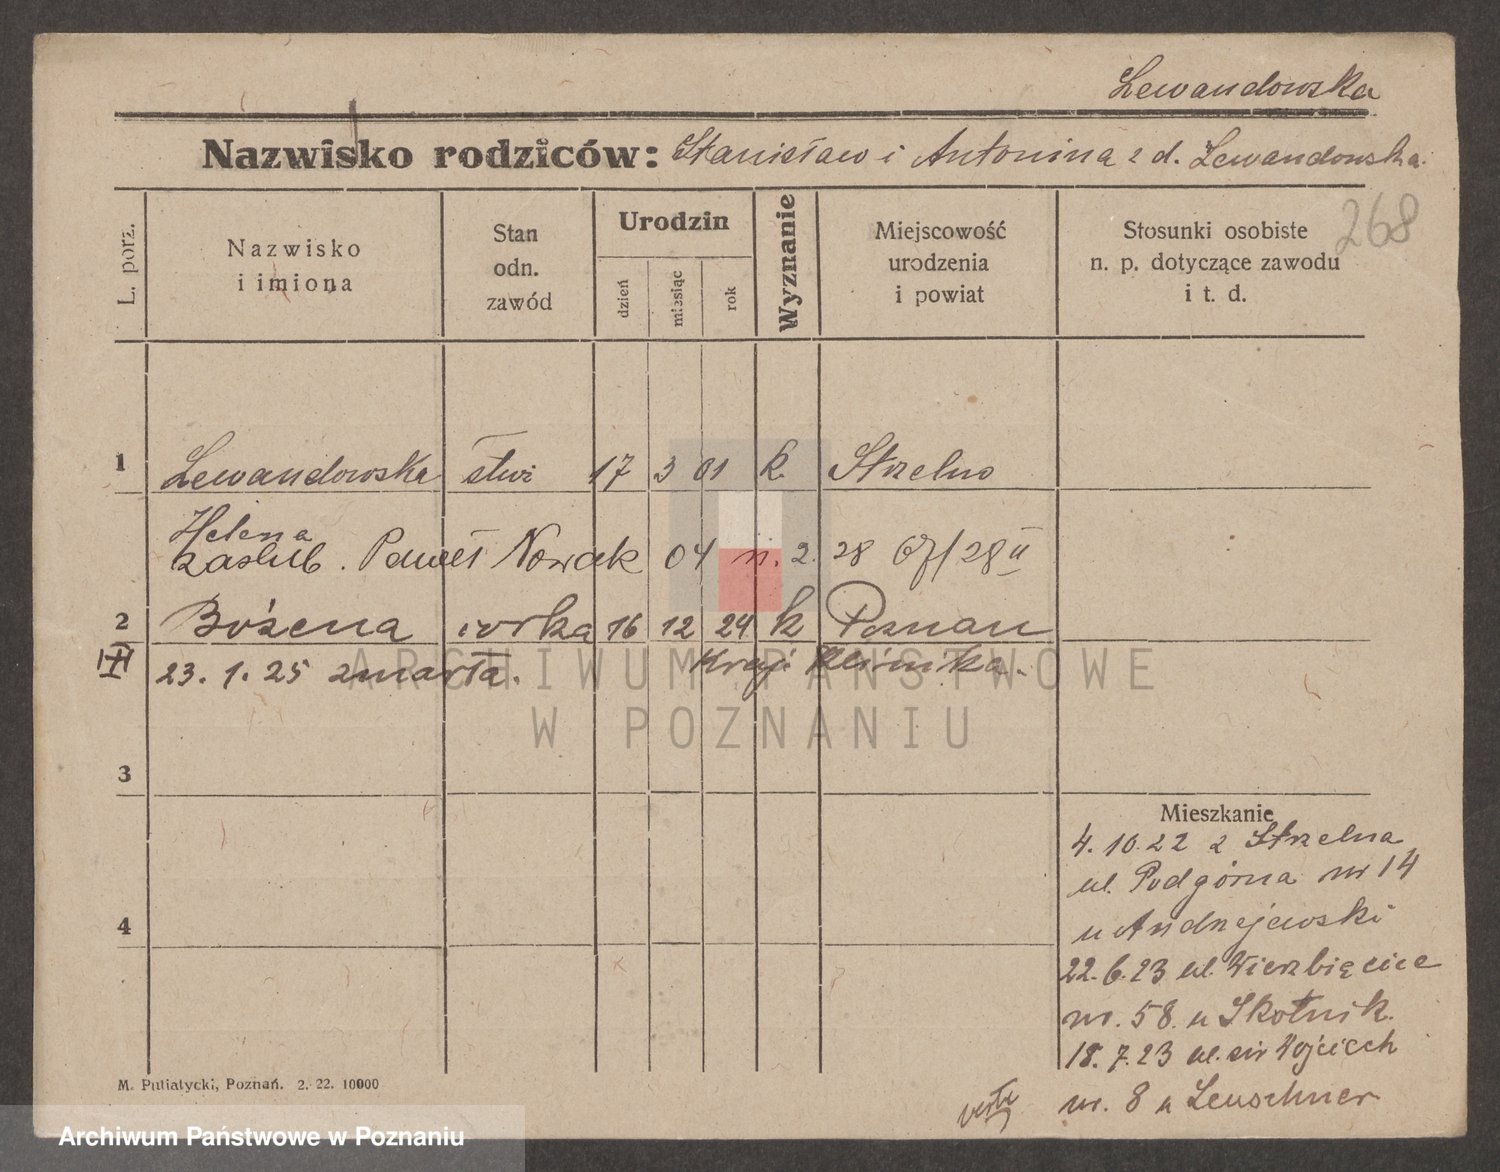 Lewandowska
Nazwisko rodziców: Stanisław i Antonina z d. Lewandowska.
268
L. porz.
Nazwisko
i imiona
Stan
odn.
zawód
Urodzin
dzień
miesiąc
rok
Wyznanie
Miejscowość
urodzenia
i powiat
Stosunki osobiste
n. p. dotyczące zawodu
i t. d.
1 Lewandowska służ 17 3 01 k. Strzelno
Helena
zaślub. Paweł Nowak 04 n. 2. 28 /28 II
2 Bożena córka 16 12 24 k Poznań
23. 1. 25 zmarła. Kraj. Klinika.
3
4
Mieszkanie
4. 10. 22 z Strzelna
ul. Podgórna nr 14
u Andrzejewski
22. 6. 23 ul. Wierzbięcice
nr. 58. u Skotnik.
18. 7. 23 ul. św Wojciech
nr. 8 u Leuschner
verte
M. Putiatycki, Poznań. 2. 22. 10000
ARCHIWUM PAŃSTWOWE
W POZNANIU
Archiwum Państwowe w Poznaniu